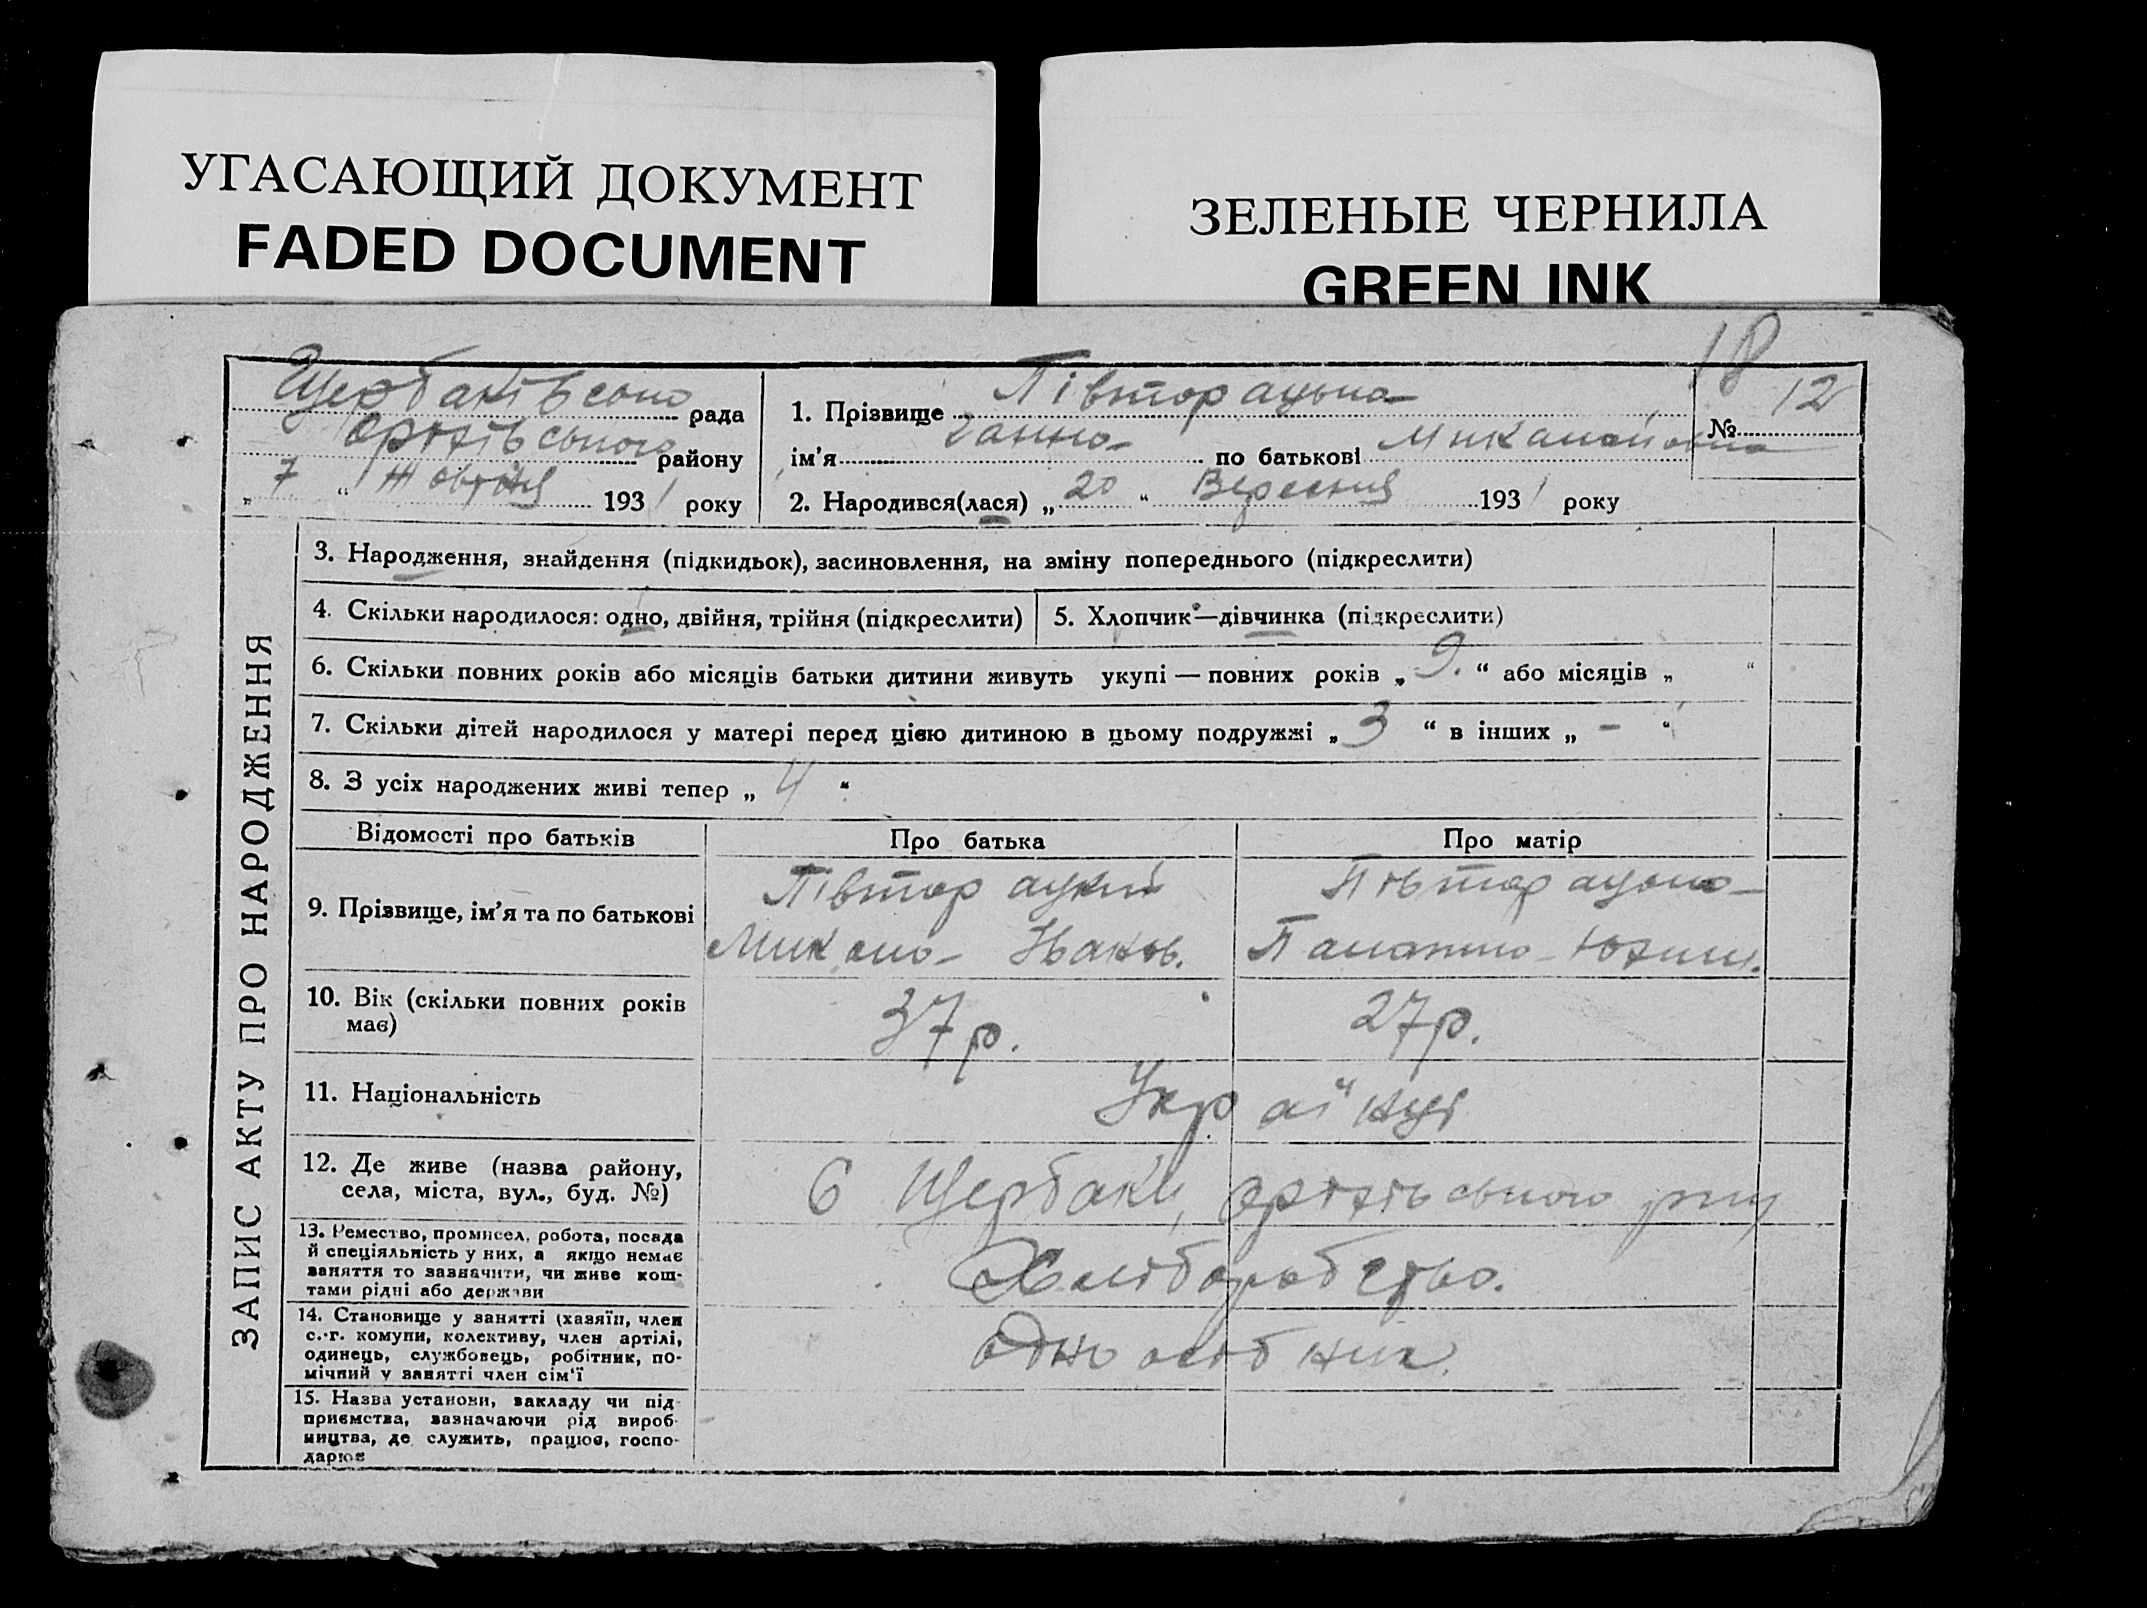 УГАСАЮЩИЙ ДОКУМЕНТ
FADED DOCUMENT
ЗЕЛЕНЫЕ ЧЕРНИЛА
GREEN INK
18
Щербаківсько рада
району
„ 7 “ Жовтня 1931 року
1. Прізвище Півторацька
№ 12
ім'я Ганна по батькові Миколайовна
2. Народився(лася) „ 20 “ Вересния 1931 року
ЗАПИС АКТУ ПРО НАРОДЖЕННЯ
3. Народження, знайдення (підкидьок), засиновлення, на зміну попереднього (підкреслити)
4. Скільки народилося: одно, двійня, трійня (підкреслити)
5. Хлопчик—дівчинка (підкреслити)
6. Скільки повних років або місяців батьки дитини живуть укупі — повних років „ 9. “ або місяців „ “
7. Скільки дітей народилося у матері перед цією дитиною в цьому подружжі „ 3 “ в інших „ - “
8. З усіх народжених живі тепер „ 4 “
Відомості про батьків
Про батька
Про матір
9. Прізвище, ім'я та по батькові
Півторацкий
Микола
Півторацька
10. Вік (скільки повних років
має)
37р.
27р.
11. Національність
Українці
12. Де живе (назва району,
села, міста, вул., буд. №)
С Щербаки, рну
13. Ремество, промисел, робота, посада
й спеціяльність у них, а якщо немає
заняття то зазначити, чи живе кош-
тами рідні або держави
Хліборобство.
14. Становище у занятті (хазяїн, член
с.-г. комуни, колективу, член артілі,
одинець, службовець, робітник, по-
мічний у занятті член сім'ї
одноосібник
15. Назва установи, закладу чи під-
приємства, зазначаючи рід вироб-
ництва, де служить, працює, госпо-
дарює